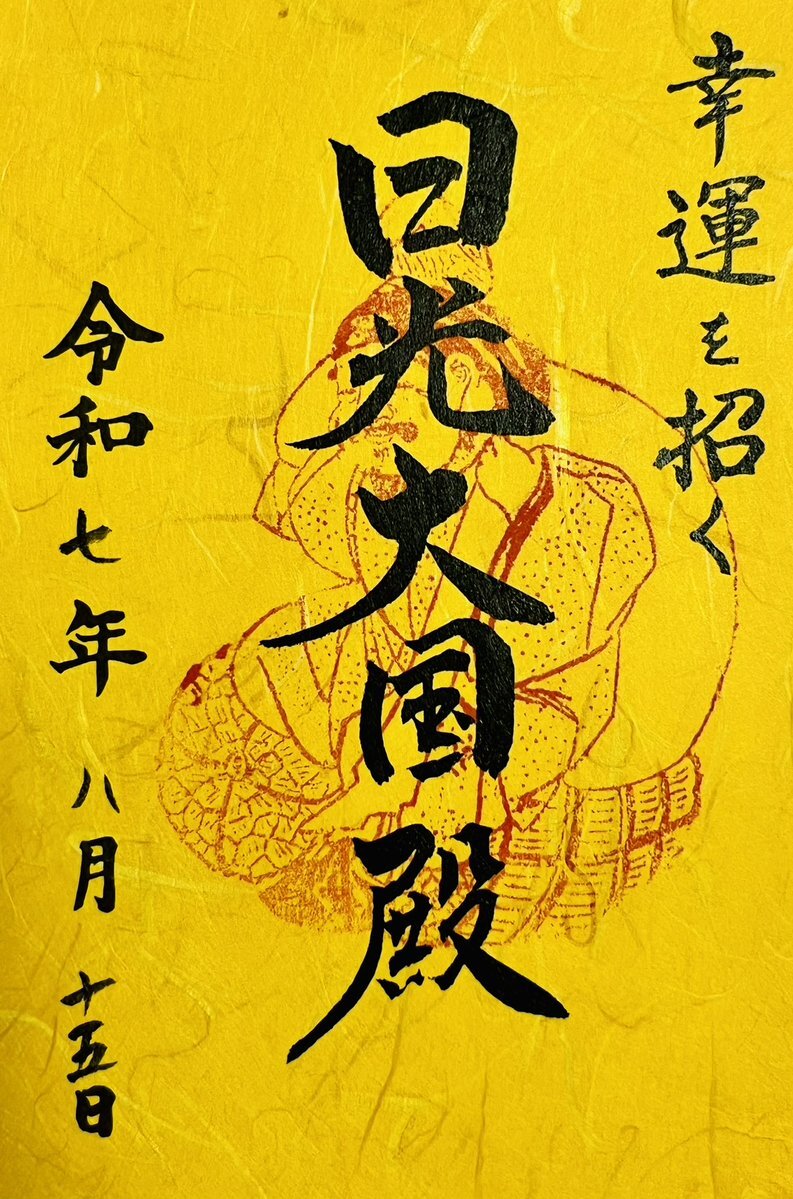 幸運を招く
日光大国殿
令和七年八月十五日